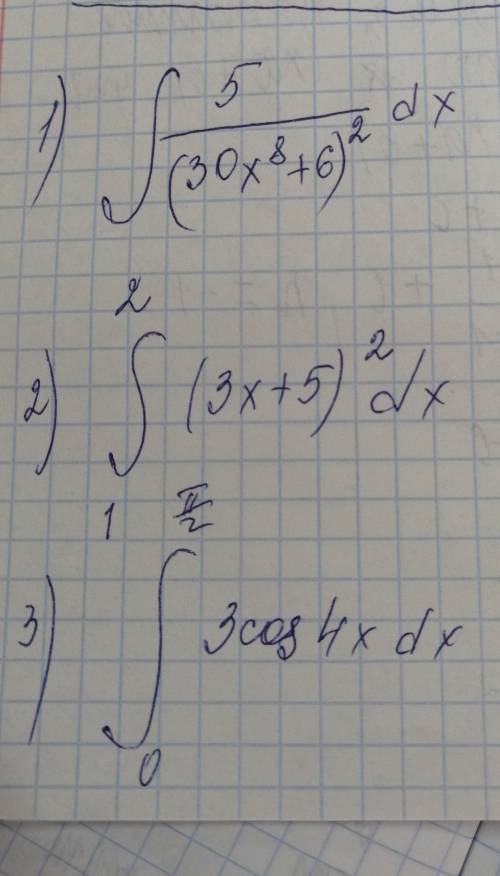 1) ∫ 5/(30x⁸+6)² dx
2) ∫₁² (3x+5)² dx
3) ∫₀^(π/2) 3cos 4x dx